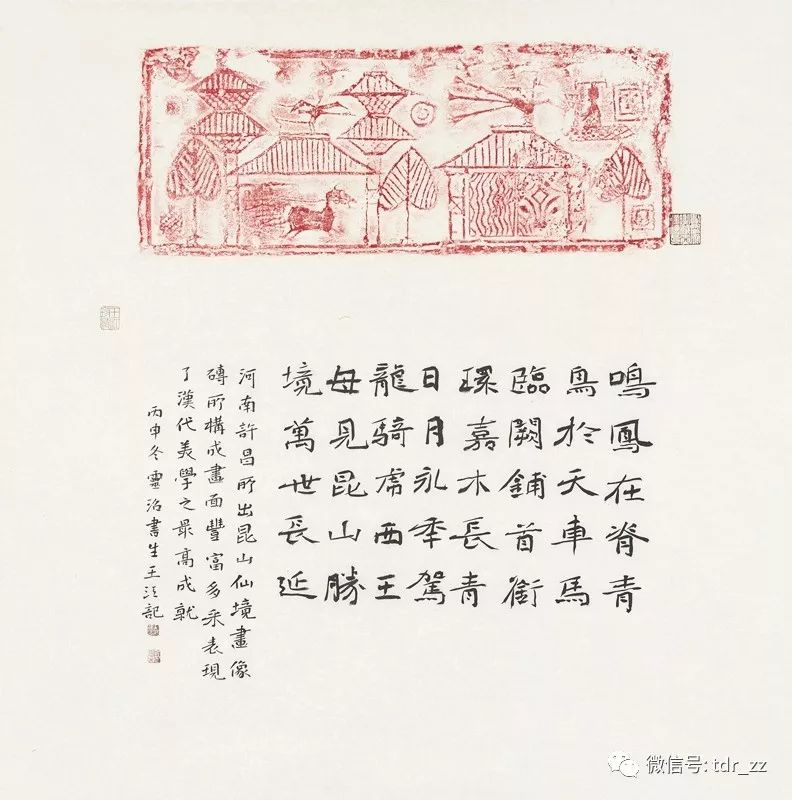 鳴鳳在脊青
鳥於天車馬
臨闕鋪首銜
環嘉木長青
日月永年駕
龍騎虎西王
母見昆山勝
境萬世長延
河南許昌所出昆山仙境畫像
磚所構成畫面豐富多采表現
了漢代美學之最高成就
丙申冬靈泊書生王泩記
微信号: tdr_zz